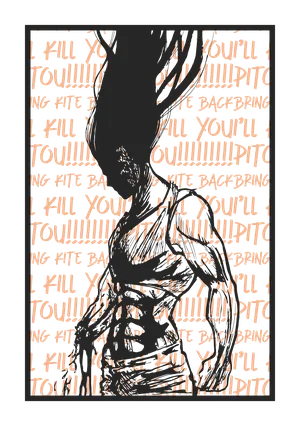 L KILL YOU I'LL
TOU!!!!!!!!!!!!PITO
NG KITE BACKBRING
L KILL YOU I'LL
TOU!!!!!!!!!!!!PITO
NG KITE BACKBRING
L KILL YOU I'LL
TOU!!!!!!!!!!!!PITO
NG KITE BACKBRING
L KILL YOU I'LL
TOU!!!!!!!!!!!!PITO
NG KITE BACKBRING
L KILL YOU I'LL
TOU!!!!!!!!!!!!PITO